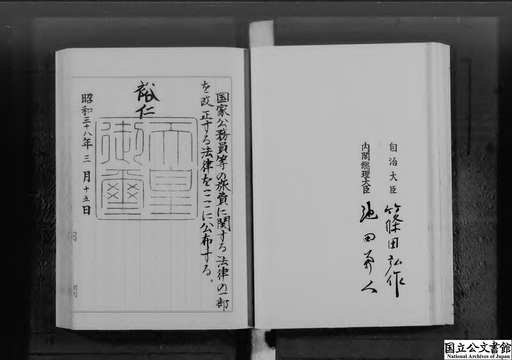 国家公務員等の旅費に関する法律の一部
を改正する法律をここに公布する。
裕仁
天皇
御璽
昭和三十八年三月十五日
自治大臣
篠田弘作
内閣総理大臣
池田勇人
国立公文書館
National Archives of Japan